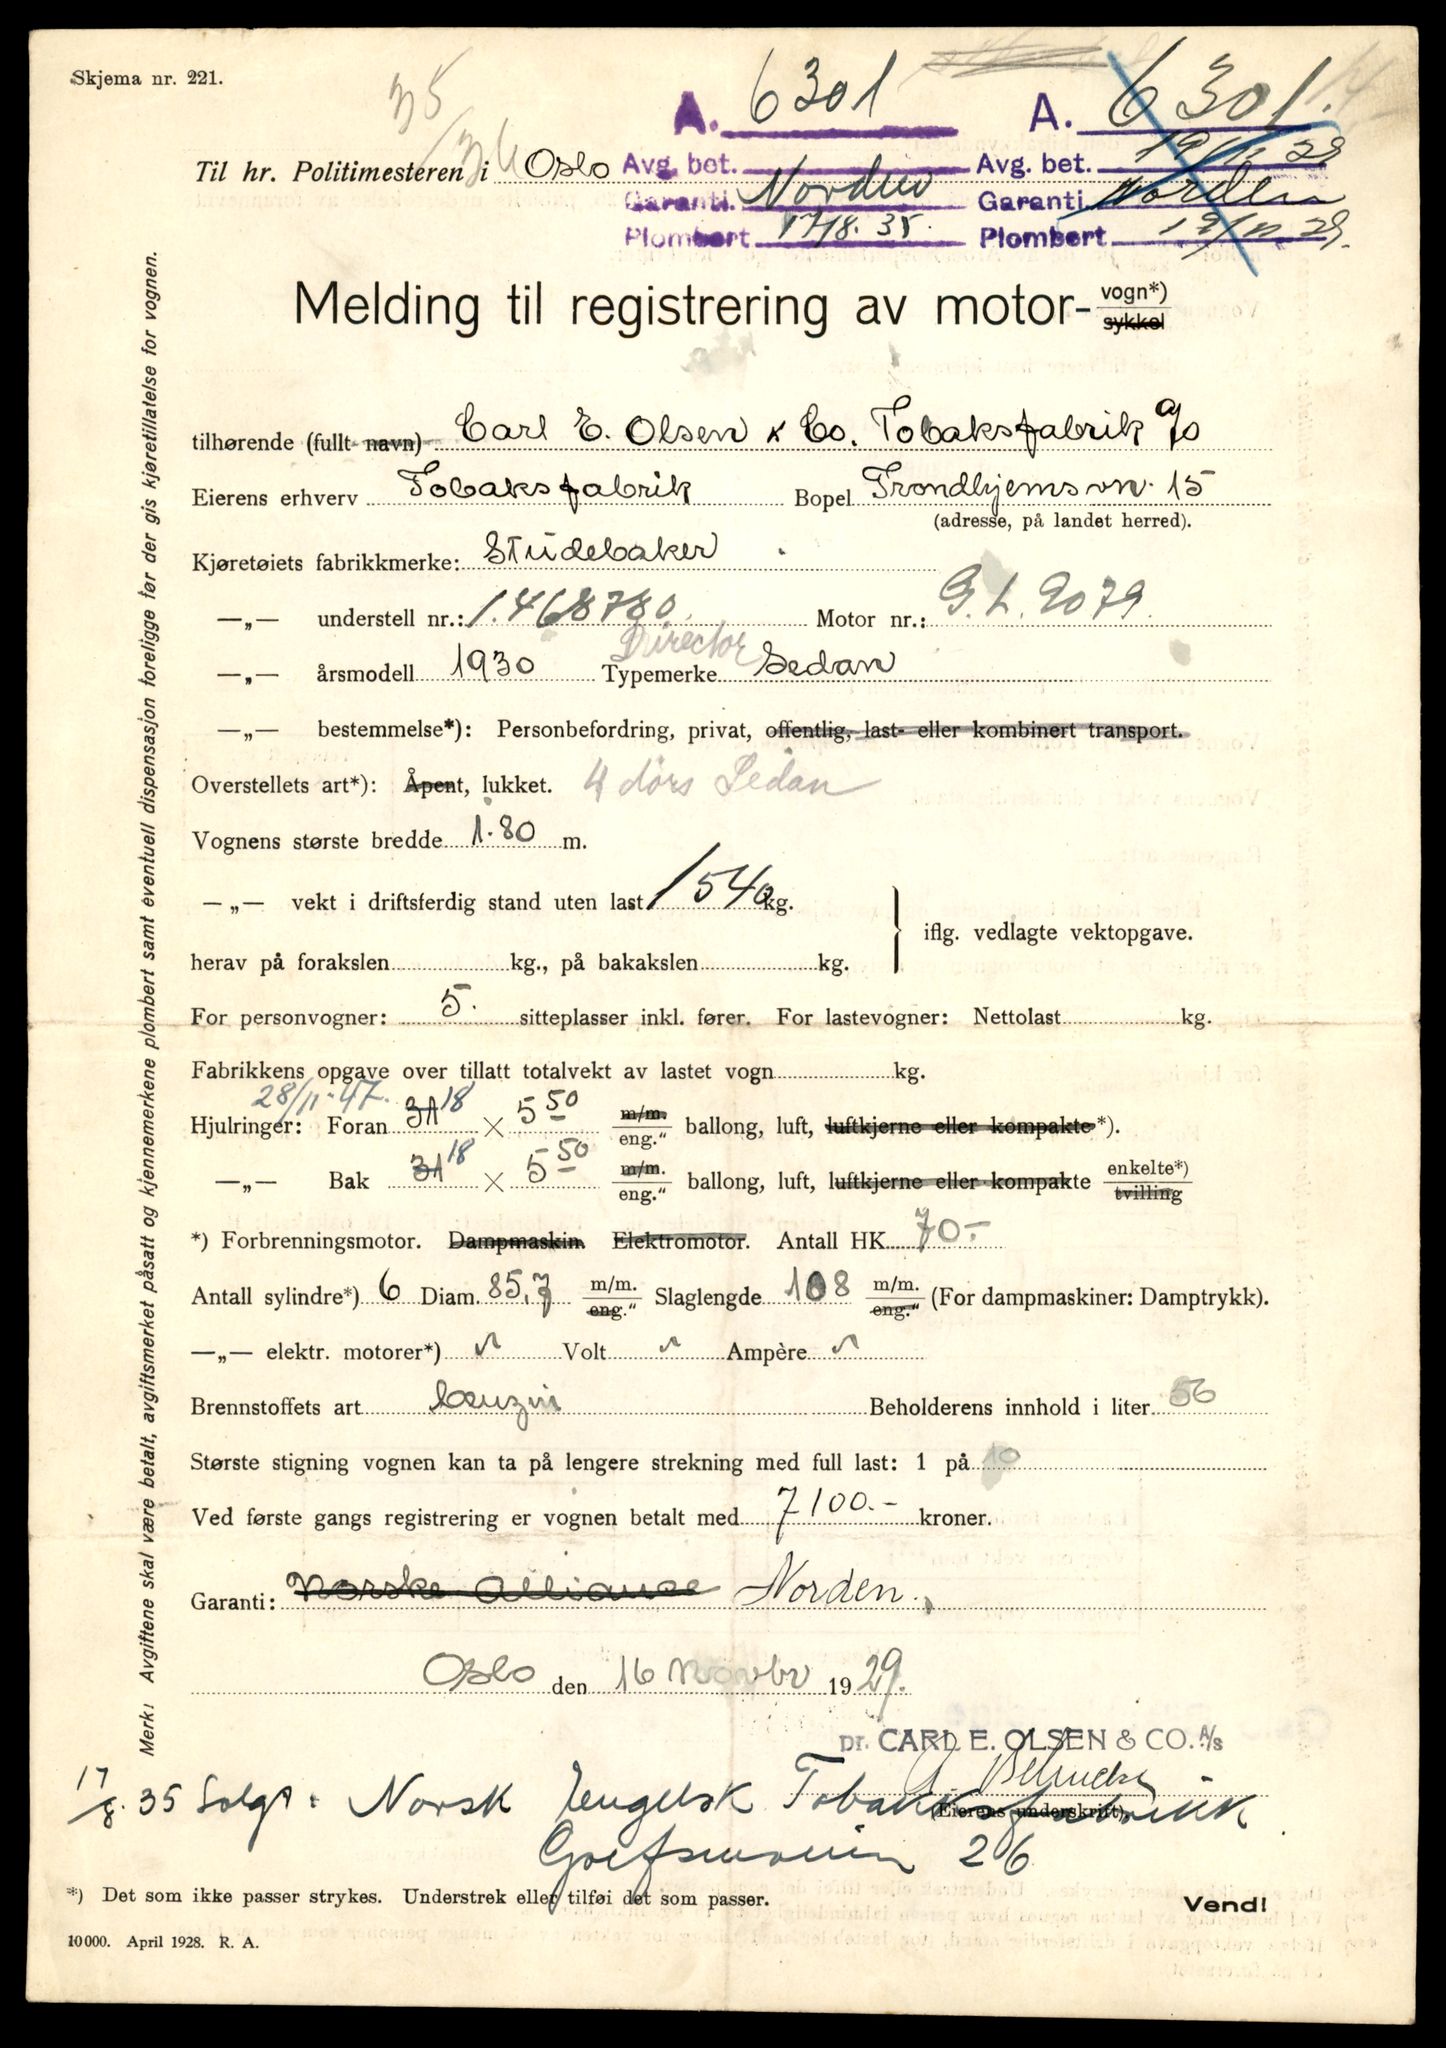 Skjema nr. 221.
35/36
A. 6301
A. 6301.
Til hr. Politimesteren i Oslo
Avg. bet.
Avg. bet. 19/11 29
Garanti. Norden
Garanti Norden
Plombert 17/8. 35.
Plombert 19/11 29.
Melding til registrering av motor- vogn*) sykkel
tilhørende (fullt navn) Carl E. Olsen & Co. Tobaksfabrik a/s
Eierens erhverv Tobaksfabrik Bopel Trondhjemsvn. 15
(adresse, på landet herred).
Kjøretøiets fabrikkmerke: Studebaker
—„— understell nr.: 1.468780. Motor nr.: G.L. 2079.
Director
—„— årsmodell 1930 Typemerke Sedan
—„— bestemmelse*): Personbefordring, privat, offentlig, last- eller kombinert transport.
Overstellets art*): Åpent, lukket. 4 dørs Sedan
Vognens største bredde 1.80 m.
—„— vekt i driftsferdig stand uten last 1540 kg.
iflg. vedlagte vektopgave.
herav på forakslen kg., på bakakslen kg.
For personvogner: 5. sitteplasser inkl. fører. For lastevogner: Nettolast kg.
Fabrikkens opgave over tillatt totalvekt av lastet vogn kg.
28/11-47.
Hjulringer: Foran 31 18 × 5 50 m/m. eng." ballong, luft, luftkjerne eller kompakte*).
—„— Bak 31 18 × 5 50 m/m. eng." ballong, luft, luftkjerne eller kompakte enkelte*) tvilling
*) Forbrenningsmotor. Dampmaskin. Elektromotor. Antall HK. 70.-
Antall sylindre*) 6 Diam. 85,7 m/m. eng." Slaglengde 108 m/m. eng." (For dampmaskiner: Damptrykk).
—„— elektr. motorer*) Volt Ampère
Brennstoffets art benzin Beholderens innhold i liter 56
Største stigning vognen kan ta på lengere strekning med full last: 1 på 10
Ved første gangs registrering er vognen betalt med 7100.- kroner.
Garanti: Norske Alliance Norden.
Oslo den 16 Novbr 1929.
Dr. CARL E. OLSEN & CO. A/S
(Eierens underskrift)
17/8. 35 Solgt: Norsk Engelsk Tobakksfabrikk
Grefsenveien 26
*) Det som ikke passer strykes. Understrek eller tilføi det som passer.
Vend!
10000. April 1928. R. A.
Merk! Avgiftene skal være betalt, avgiftsmerket påsatt og kjennemerkene plombert samt eventuell dispensasjon foreligge før der gis kjøretillatelse for vognen.